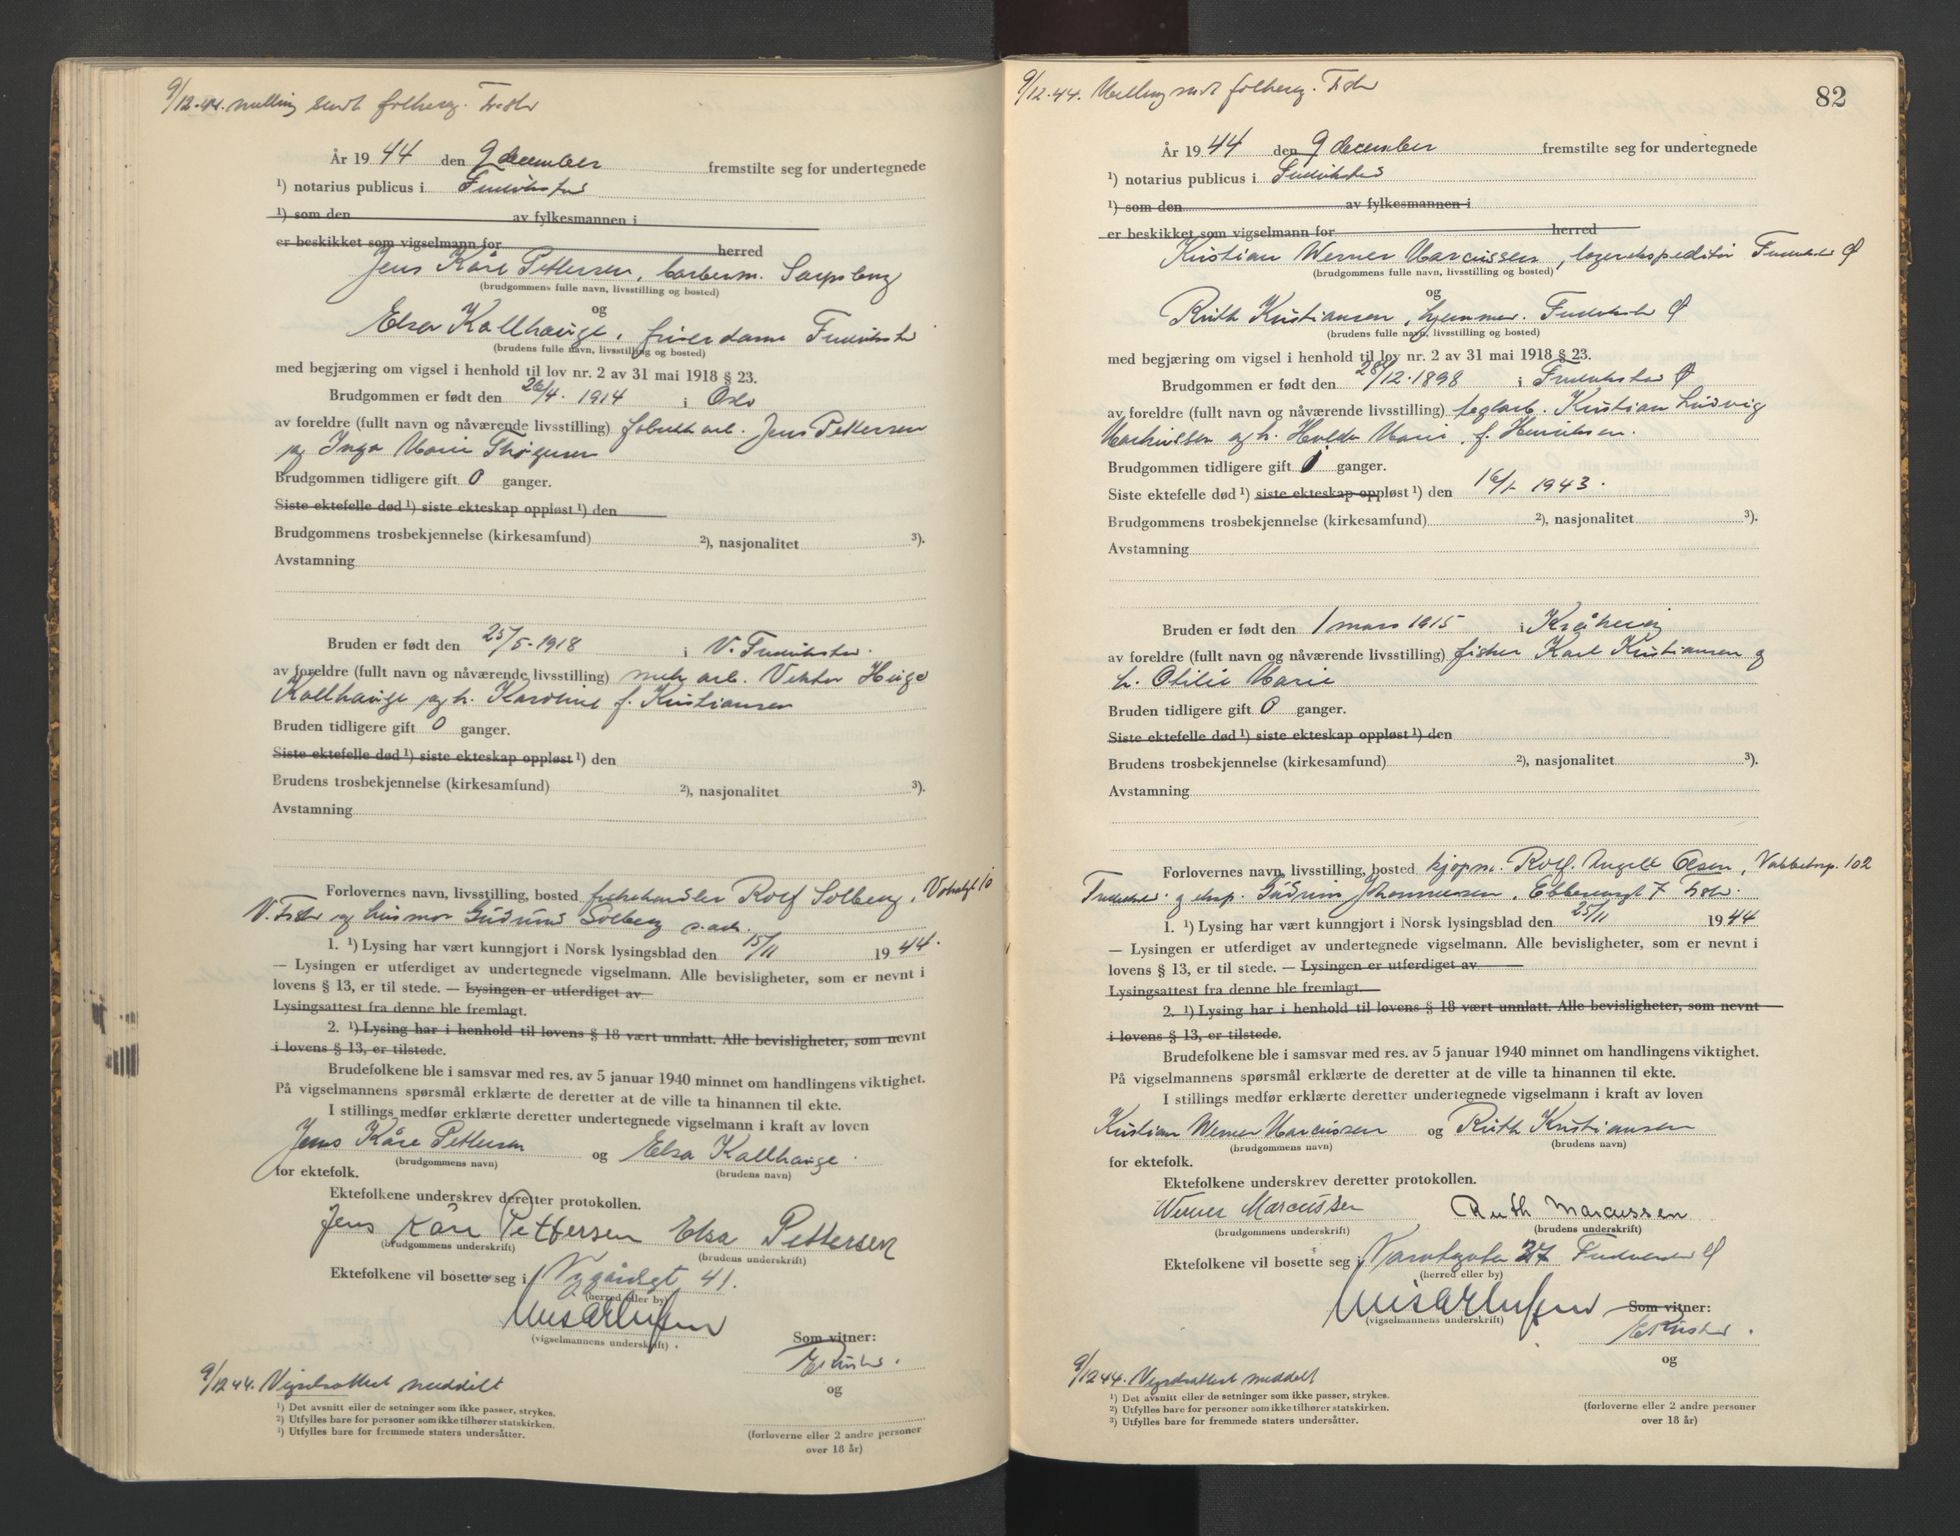 9/12-44. melding sendt folkereg. Fr.stad
År 1944 den 9 december fremstilte seg for undertegnede
¹) notarius publicus i Fredrikstad
¹) som den av fylkesmannen i
er beskikket som vigselmann for herred
Jens Kåre Pettersen, barberm. Sarpsborg
(brudgommens fulle navn, livsstilling og bosted)
og
Elsa Kallhauge, friserdame Fredrikstad
(brudens fulle navn, livsstilling og bosted)
med begjæring om vigsel i henhold til lov nr. 2 av 31 mai 1918 § 23.
Brudgommen er født den 26/4. 1914 i Oslo
av foreldre (fullt navn og nåværende livsstilling) fabrikkarb. Jens Pettersen
og Inga Marie
Brudgommen tidligere gift 0 ganger.
Siste ektefelle død ¹) siste ekteskap oppløst ¹) den
Brudgommens trosbekjennelse (kirkesamfund) ²), nasjonalitet ³).
Avstamning
Bruden er født den 25/5-1918 i V. Fredrikstad.
av foreldre (fullt navn og nåværende livsstilling) mek arb. Viktor Hugo
Kallhauge og h. Karoline f. Kristiansen
Bruden tidligere gift 0 ganger.
Siste ektefelle død ¹) siste ekteskap oppløst ¹) den
Brudens trosbekjennelse (kirkesamfund) ²), nasjonalitet ³).
Avstamning
Forlovernes navn, livsstilling, bosted fiskehandler Rolf Solberg, 10
V. Fr.stad og husmor Gudrun Solberg s. adr.
1. ¹) Lysing har vært kunngjort i Norsk lysingsblad den 15/11 1944.
— Lysingen er utferdiget av undertegnede vigselmann. Alle bevisligheter, som er nevnt i
lovens § 13, er til stede. — Lysingen er utferdiget av
Lysingsattest fra denne ble fremlagt.
2. ¹) Lysing har i henhold til lovens § 18 vært unnlatt. Alle bevisligheter, som nevnt
i lovens § 13, er tilstede.
Brudefolkene ble i samsvar med res. av 5 januar 1940 minnet om handlingens viktighet.
På vigselmannens spørsmål erklærte de deretter at de ville ta hinannen til ekte.
I stillings medfør erklærte deretter undertegnede vigselmann i kraft av loven
Jens Kåre Pettersen og Elsa Kallhauge.
(brudgommens navn) (brudens navn)
for ektefolk.
Ektefolkene underskrev deretter protokollen.
Jens Kåre Pettersen Elsa Pettersen
(brudgommens underskrift) (brudens underskrift)
Ektefolkene vil bosette seg i Nygårdsgt 41.
(herred eller by)
(vigselmannens underskrift).
Som vitner:
og
9/12 44. Vigselattest meddelt
¹) Det avsnitt eller de setninger som ikke passer, strykes.
²) Utfylles bare for personer som ikke tilhører statskirken.
³) Utfylles bare for fremmede staters undersåtter.
(forloverne eller 2 andre personer
over 18 år)
82
9/12-44. Melding sendt folkereg. Fr.stad
År 1944 den 9 december fremstilte seg for undertegnede
¹) notarius publicus i Fredrikstad
¹) som den av fylkesmannen i
er beskikket som vigselmann for herred
Kristian Werner Marcussen, lagerekspeditør Fredrikstad Ø
(brudgommens fulle navn, livsstilling og bosted)
og
Ruth Kristiansen, hjemmev. Fredrikstad Ø
(brudens fulle navn, livsstilling og bosted)
med begjæring om vigsel i henhold til lov nr. 2 av 31 mai 1918 § 23.
Brudgommen er født den 28/12-1898 i Fredrikstad Ø
av foreldre (fullt navn og nåværende livsstilling) teglarb. Kristian Ludvig
Markussen og h. Hulda Marie, f. Henriksen.
Brudgommen tidligere gift 1 ganger.
Siste ektefelle død ¹) siste ekteskap oppløst ¹) den 16/1- 1943.
Brudgommens trosbekjennelse (kirkesamfund) ²), nasjonalitet ³).
Avstamning
Bruden er født den 1 mars 1915 i Kråkerøy
av foreldre (fullt navn og nåværende livsstilling) fisker Karl Kristiansen og
h. Otilie Marie
Bruden tidligere gift 0 ganger.
Siste ektefelle død ¹) siste ekteskap oppløst ¹) den
Brudens trosbekjennelse (kirkesamfund) ²), nasjonalitet ³).
Avstamning
Forlovernes navn, livsstilling, bosted kjøpm. Rolf Angell Olsen, 102
Fredrikstad og eksp. Gudrun Johannessen, 7 Fr.stad.
1. ¹) Lysing har vært kunngjort i Norsk lysingsblad den 25/11 1944
— Lysingen er utferdiget av undertegnede vigselmann. Alle bevisligheter, som er nevnt i
lovens § 13, er til stede. — Lysingen er utferdiget av
Lysingsattest fra denne ble fremlagt.
2. ¹) Lysing har i henhold til lovens § 18 vært unnlatt. Alle bevisligheter, som nevnt
i lovens § 13, er tilstede.
Brudefolkene ble i samsvar med res. av 5 januar 1940 minnet om handlingens viktighet.
På vigselmannens spørsmål erklærte de deretter at de ville ta hinannen til ekte.
I stillings medfør erklærte deretter undertegnede vigselmann i kraft av loven
Kristian Werner Marcussen og Ruth Kristiansen
(brudgommens navn) (brudens navn)
for ektefolk.
Ektefolkene underskrev deretter protokollen.
Werner Marcussen Ruth Marcussen
(brudgommens underskrift) (brudens underskrift)
Ektefolkene vil bosette seg i 27 Fredrikstad Ø
(herred eller by)
(vigselmannens underskrift)
Som vitner:
og
9/12 44. Vigselattest meddelt
¹) Det avsnitt eller de setninger som ikke passer, strykes.
²) Utfylles bare for personer som ikke tilhører statskirken.
³) Utfylles bare for fremmede staters undersåtter.
(forloverne eller 2 andre personer
over 18 år)